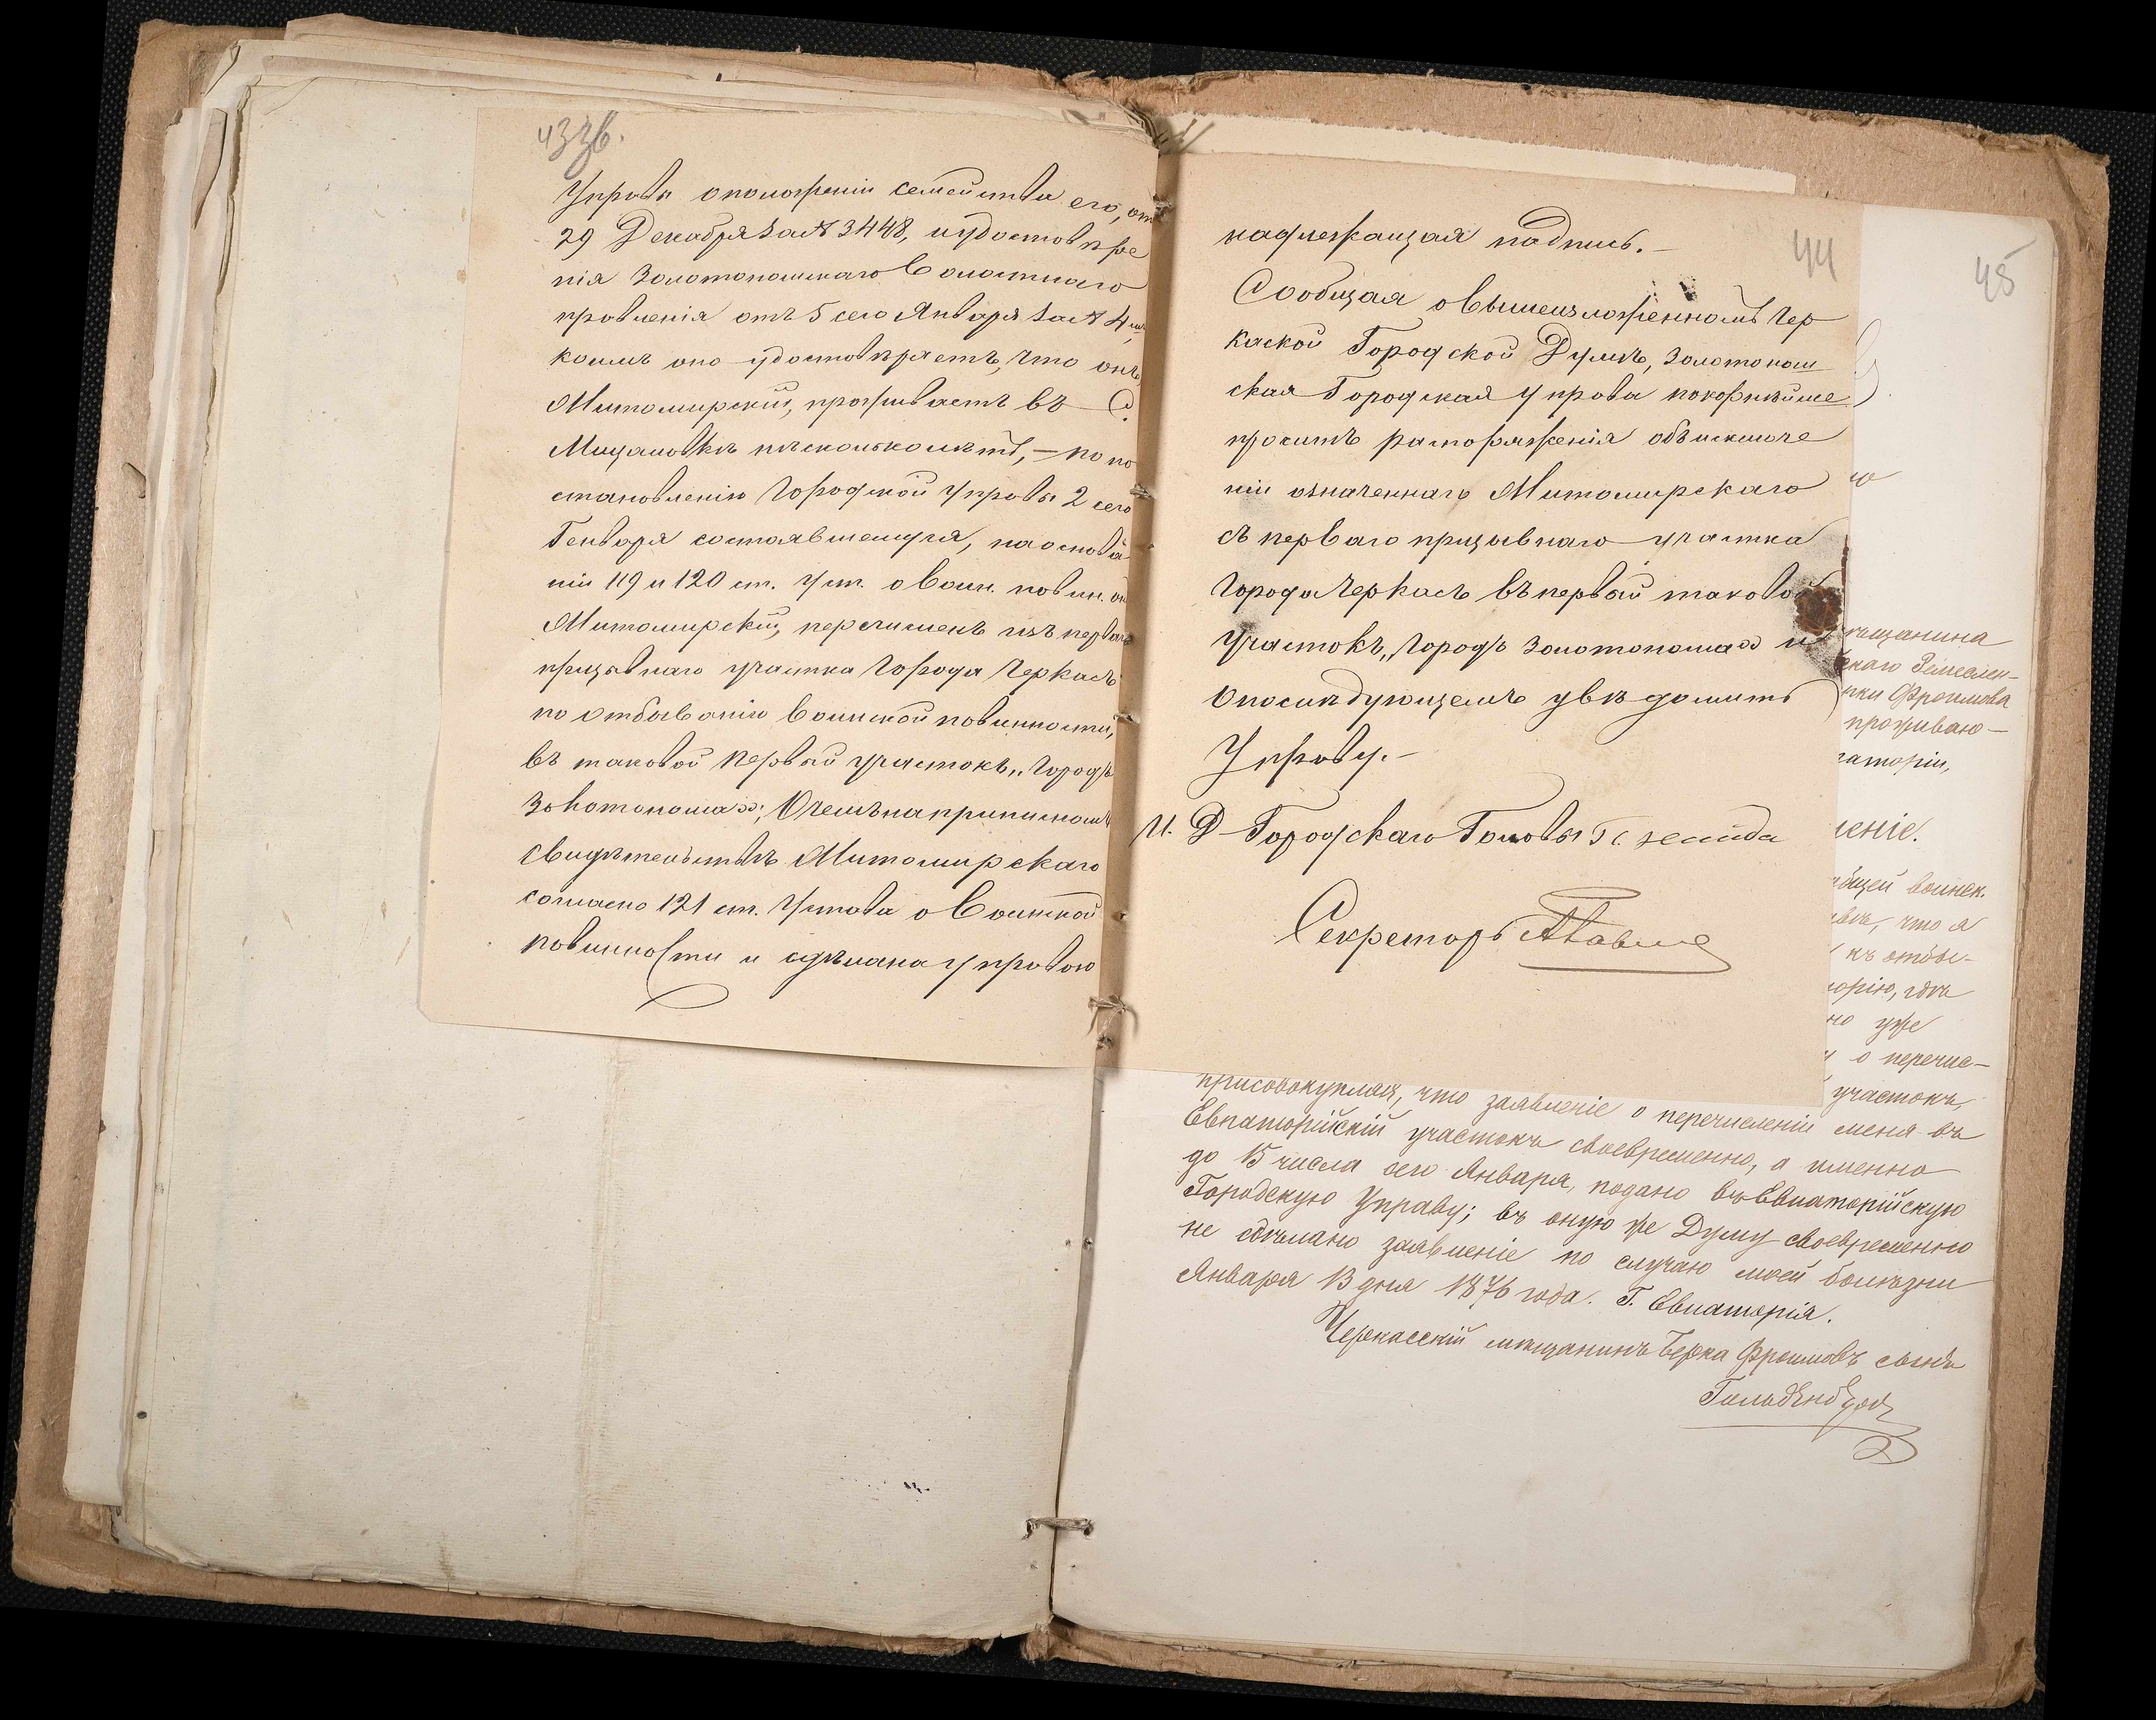 43 зв.
Управы о положеніи семейства его, отъ
29 Декабря за № 3448, и удостовѣре
нія Золотоношскаго Волостнаго
правленія отъ 5 сего Января за № 4
коимъ оно удостовѣряетъ, что онъ,
Житомирскій, проживаетъ въ С.
нѣсколько лѣтъ, – по по
становленію Городской Управы 2 сего
Генваря состоявшемуся, на основа
ніи 119 и 120 ст. Уст. о Воин. повин. онъ
Житомирскій, перечисленъ изъ перваго
призывнаго участка города Черкасъ
по отбыванію воинской повинности,
въ таковой первый участокъ „городъ
Золотоноша“; О чемъ на приписномъ
свидѣтельствѣ Житомирскаго
согласно 121 ст. Устава о Воинской
повинности и сдѣлана Управою
44
надлежащая подпись. –
Сообщая о вышеизложенномъ Чер
каской Городской Думѣ, Золотонош
ская Городская Управа покорнѣйше
проситъ распоряженія объ исключе
ніи означеннаго Житомирскаго
съ перваго призывнаго участка
города Черкасъ въ первый таковой
участокъ „городъ Золотоноша“ и
о послѣдующемъ увѣдомить
Управу. –
И. Д. Городскаго Головы
Секретарь
45
ѣщанина
Фроимова
проживаю–
раторіи,
леніе.
бщей воинск.
что я
къ отбы–
торію, гдѣ
но уже
о перечис–
участокъ,
присовокупляя, что заявленіе о перечисленіи меня въ
Евпаторійскій участокъ своевременно, а именно
до 15 числа сего Января, подано въ Евпаторійскую
Городскую Управу; въ оную же Думу своевременно
не сдѣлано заявленіе по случаю моей болѣзни
Января 13 дня 1876 года. Г. Евпаторія.
Черкасскій мѣщанинъ Берка Фроимовъ сынъ